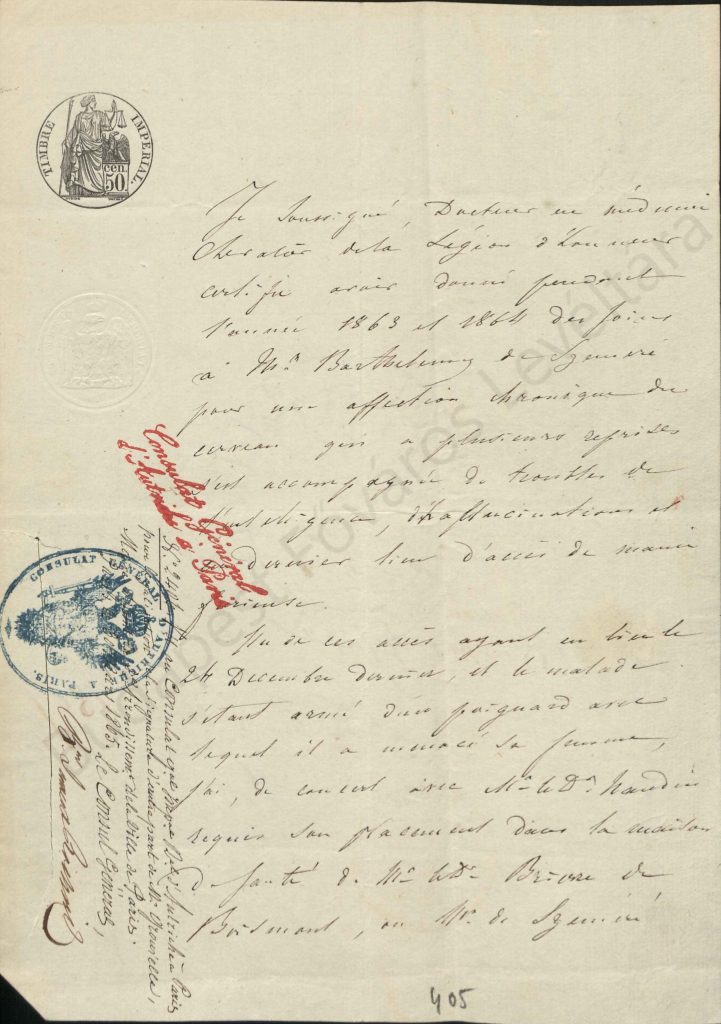 TIMBRE IMPERIAL.
50 cen.
Je soussigné, Docteur en médecine
Chevalier de la Légion d'honneur
certifie avoir donné pendant
l'année 1863 et 1864 des soins
à Mr. Barthelemy de Szemeré
pour une affection chronique du
cerveau qui a plusieurs reprises
s'est accompagnée de troubles de
l'intelligence, d'hallucinations et
dernier lieu d'accès de manie
furieuse.
Un de ces accès ayant eu lieu le
24 Decembre dernier, et le malade
s'étant armé d'un poignard avec
lequel il a menacé sa femme,
j'ai, de concert avec Mr. le Dr.
requis son placement dans la maison
de santé de Mr. le Dr. Brierre de
Boismont, ou Mr. de Szemeré,
Consulat Général
d'Autriche à Paris
CONSULAT GÉNÉRAL D'AUTRICHE A PARIS.
au Consulat d'Autriche à Paris
la signature d'autre part de Mr.
de la Ville de Paris.
1865. Le Consul General,
405
Budapest Főváros Levéltára